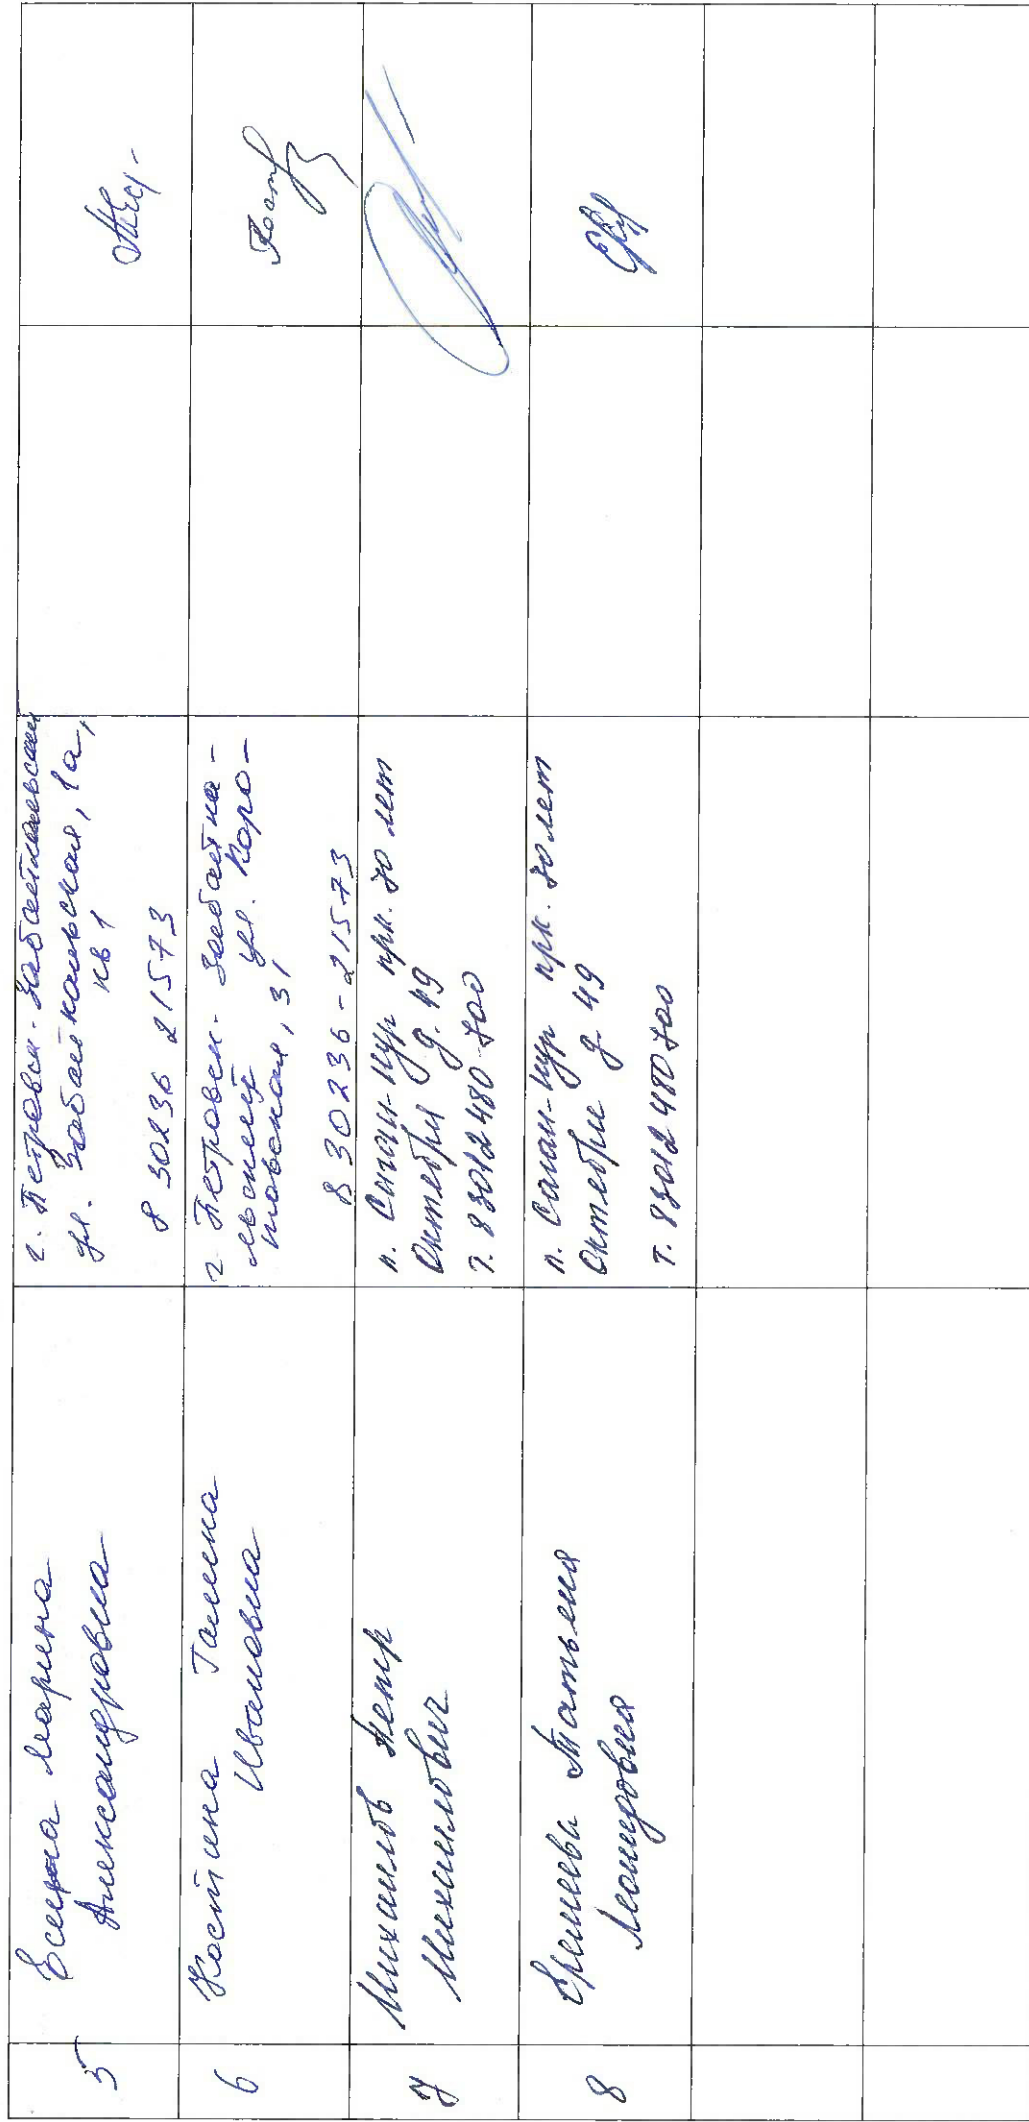 5
Есина Марина
Александровна
г. Петровск-Забайкальский
ул. Забайкальская, 1а,
кв 1
8 30236 21573
6
Костина Галина
Ивановна
г Петровск-Забайка-
льский ул. Коро-
товская, 31
8 30236-21573
7
Михайлов Петр
Михайлович
п. Саган-Нур прк. 70 лет
Октября д. 49
т. 83012 480 700
8
Еремеева Татьяна
Леонидовна
п. Саган-Нур прк. 70 лет
Октября д 49
т. 83012 480 700